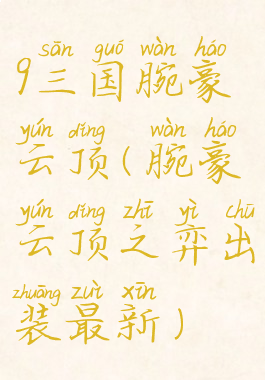 sān guó wàn háo
9三国腕豪
yún dǐng wàn háo
云顶(腕豪
yún dǐng zhī yì chū
云顶之弈出
zhuāng zuì xīn
装最新)